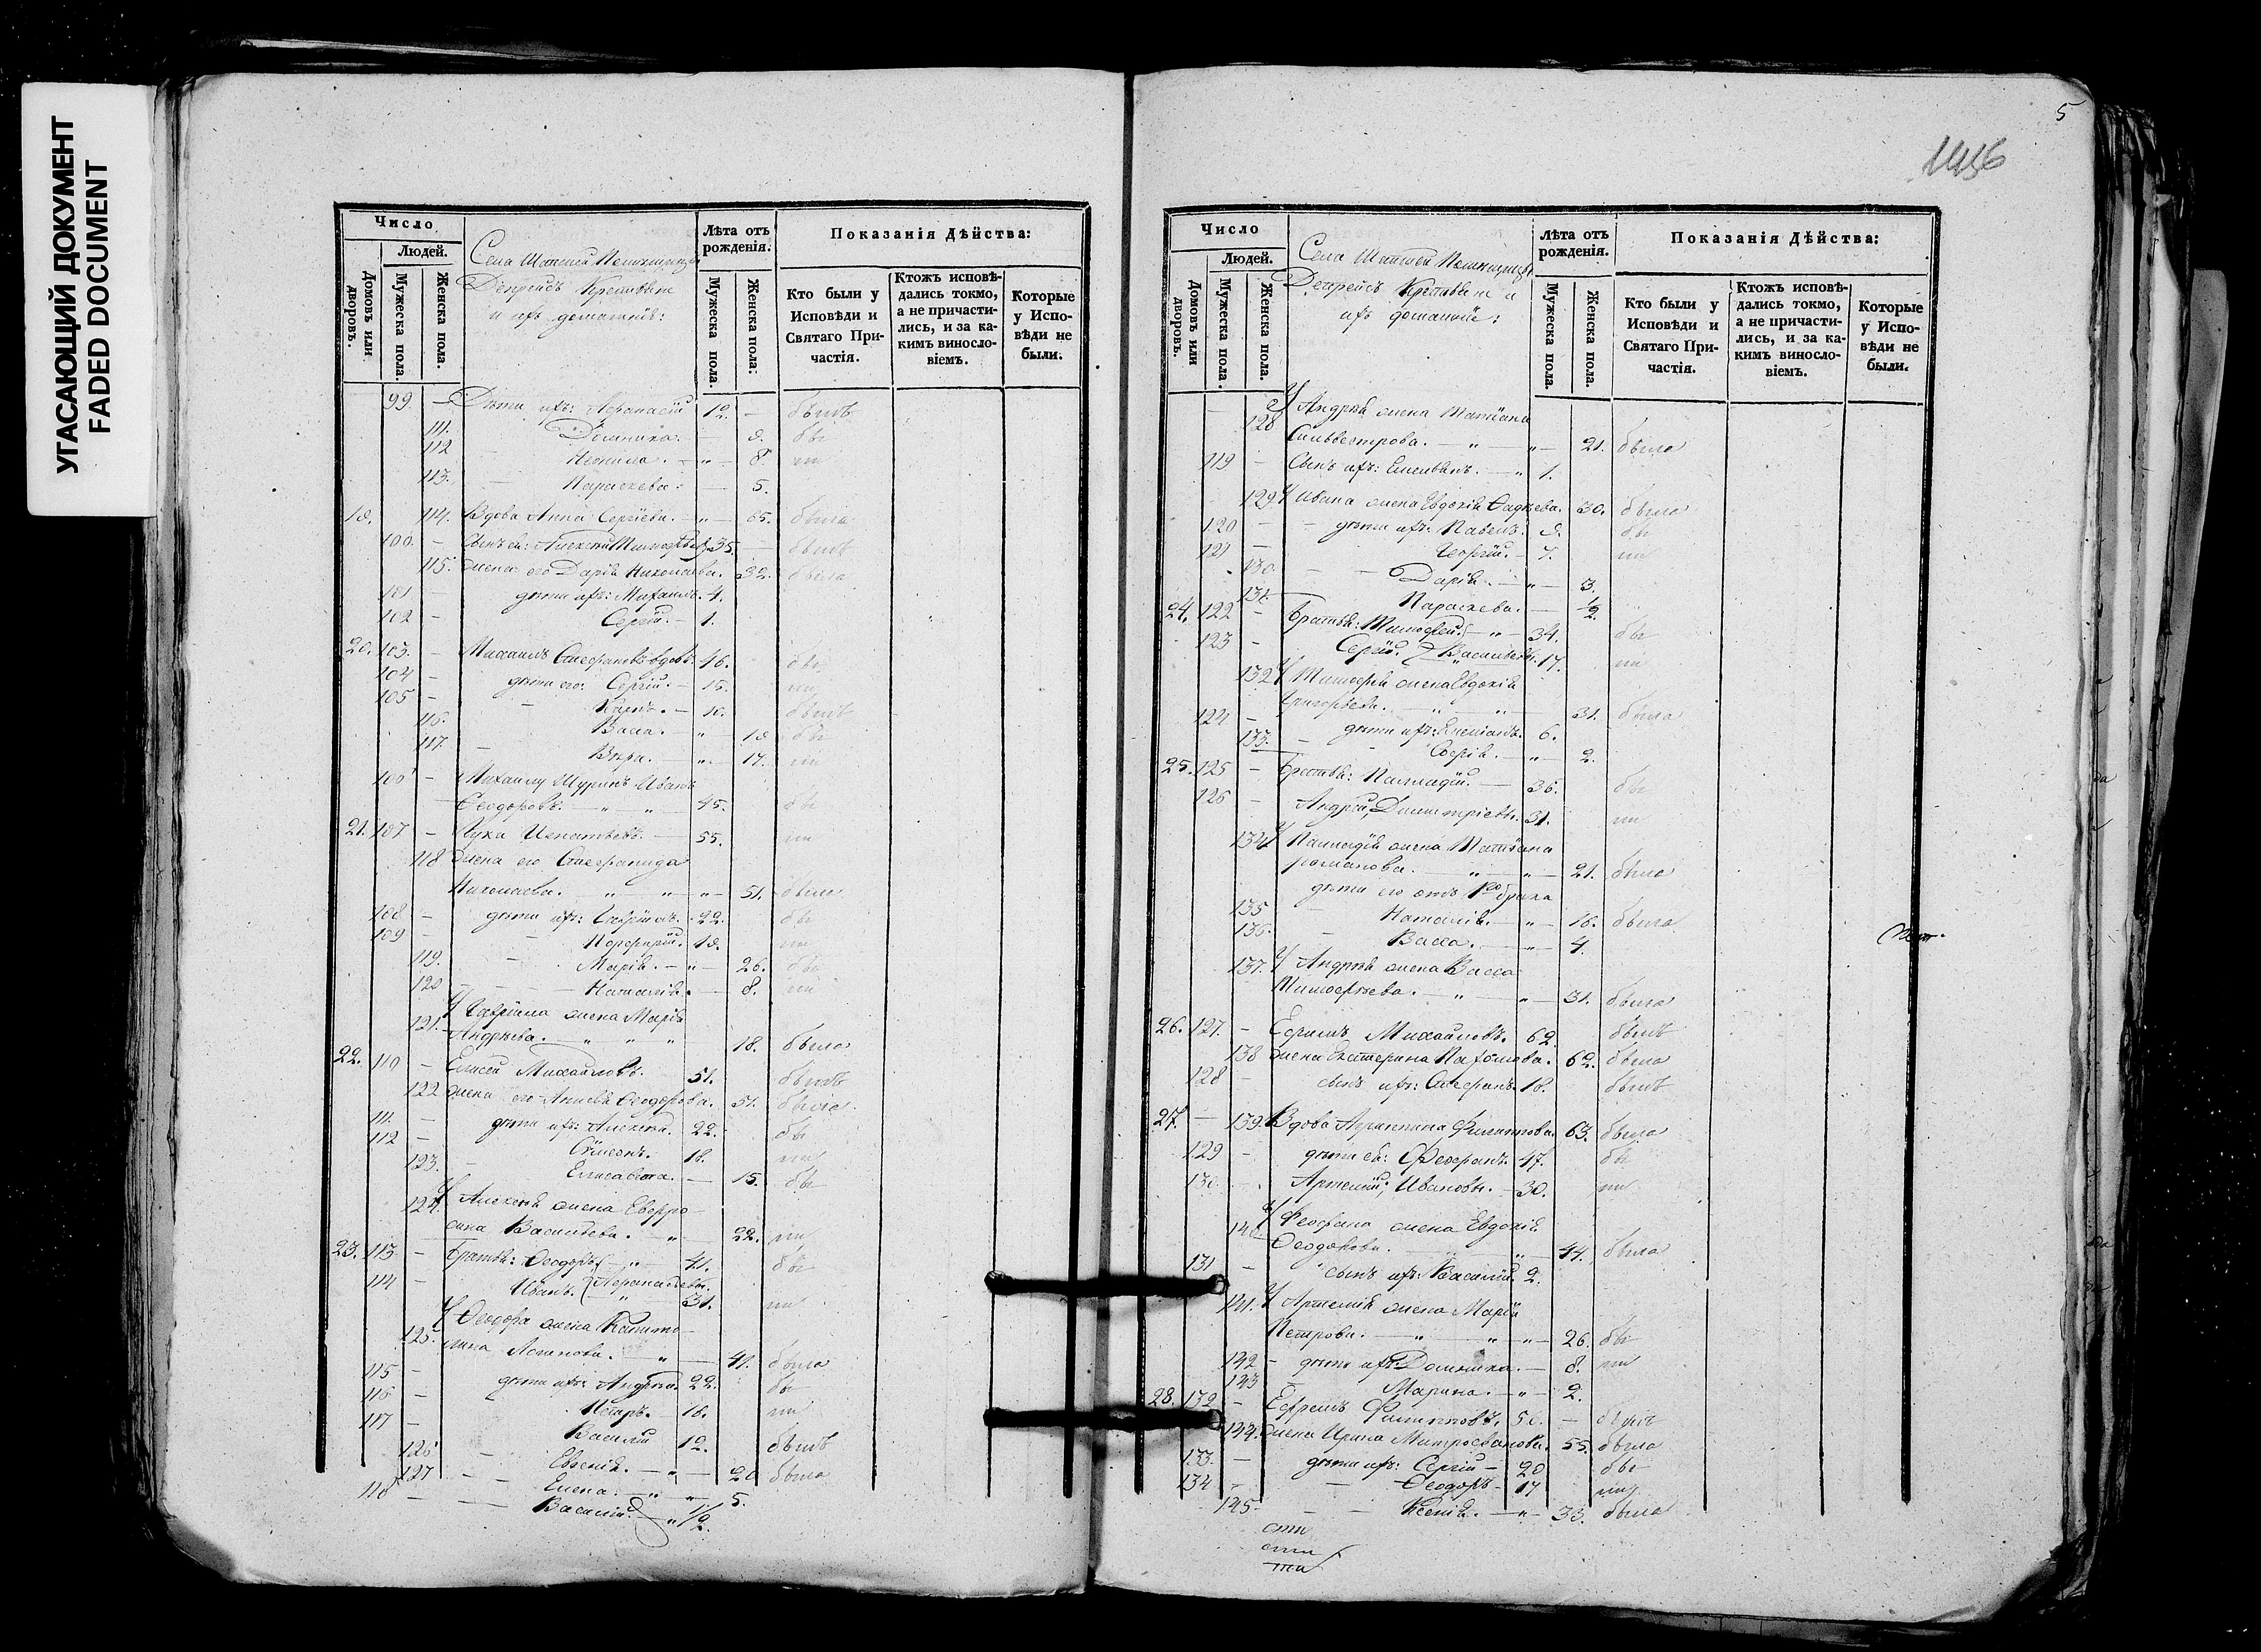 УГАСАЮЩИЙ ДОКУМЕНТ
FADED DOCUMENT
Число
Людей.
Домовъ или дворовъ.
Мужеска пола.
Женска пола.
Села
Крестьяне
и ихъ домашніе:
Лѣта отъ рожденія.
Мужеска пола.
Женска пола:
Показанія Дѣйства:
Кто были у Исповѣди и Святаго Причастія.
Ктожъ исповѣдались токмо, а не причастились, и за какимъ винословіемъ.
Которые у Исповѣди не были.
99. — Дѣти ихъ: Афанасій 12. — былъ
111. Домника. — 9. бы
112 Неонила. — „ — 8. ли
113. Параскева. — 5.
19. 114. Вдова Анна Сергіева. — „ — 65. была
100. — Сынъ ея: Алексѣй 35. — былъ
115. Жена его Дарія Николаева. 32. была
101 — дѣти ихъ: Михаилъ. 4.
102 — Сергій. — 1.
20. 103. — Михаилъ Стефановъ вдовъ. 46. бы
104 — дѣти его: Сергій. — 15. ли
105 — 10. былъ
116. Васса. — „ 19 бы
117. Вѣра. — „ — 17. ли
106 — Михаилу Шуринъ Иванъ
Ѳеодоровъ. — „ — „ 45. бы
21. 107 — Лука Игнатьевъ. — 55. ли
118 Жена его Стефанида
Николаева. „ — „ — „ — 51. была
108 — дѣти ихъ: Гавріилъ. 22. бы
109 — Порфирій. 19. ли
119. Марія. — „ — 26. бы
120 — Наталія. — 8. ли
У Гавріила жена Марія
121. Андрѣева. „ „ „ 18. была
22. 110 — Елисей Михайловъ. 51. былъ
122 Жена его Ѳеодорова. 51. была
111. — дѣти ихъ: Алексѣй. 22. бы
112 — Сѵмеонъ. 18. ли
123. Елисавета. — 15. бы
У Алексѣя жена Евфро-
124. сина Васильева. — „ — 22. ли
23. 113 — Братья: Ѳеодоръ — „ — 41. бы
114 — Иванъ. Афанасьевы. 31. ли
У Ѳеодора жена Капито-
125. лина Логинова. — „ — 41. была
115 — дѣти ихъ: Андрей. 22. бы
116 — Петръ. — 18. ли
117 — Василій 12. былъ
126 — Евгенія. — „ — 20 была
127 — Елена. — „ — „ 5.
118 — Василій. — „ 1/2.
5
Число
Людей.
Домовъ или дворовъ.
Мужеска пола.
Женска пола.
Села
Крестьяне и
ихъ домашніе:
Лѣта отъ рожденія.
Мужеска пола.
Женска пола.
Показанія Дѣйства:
Кто были у Исповѣди и Святаго Причастія.
Ктожъ исповѣдались токмо, а не причастились, и за какимъ винословіемъ.
Которые у Исповѣди не были.
У Андрея жена Матіана
128 Сильвестрова. — „ — „ — 21. была
119 — Сынъ ихъ: Емеліанъ. — „ 1.
129. У Ивана жена Евдокія Ѳадѣева. 30. была
120 — дѣти ихъ: Павелъ. 9. бы
121 — Георгій. — 7. ли
130. — Дарія. — „ — 3.
131. Параскева. — 1/2.
24. 122 — Братья: Тимофей. — „ — 34. бы
123 — Сергій. Васильевы. 17. ли
132 У Тимофея жена Евдокія
Григорьева. — „ — „ — 31. была
124 — дѣти ихъ: 6.
133. — Софія. — „ — 2.
25. 125 — Братья: Палладій. — 36. бы
126 — Андрей, Димитріевы. 31. ли
134 У Палладія жена Татіана
романова. — „ — „ — 21. была
дѣти его отъ 1го брака
135 Наталія. — „ — 16. была
136. — Васса. — „ — 4.
137. У Андрея жена Васса
Тимофѣева. — „ — „ — 31. была
26. 127. — Ефимъ Михайловъ. 62. былъ
138 Жена Екатерина Пахомова. 62. была
128 — сынъ ихъ: Стефанъ. 18. былъ
27. — 139. Вдова Агриппина Филиппова. 63. была
129 — дѣти ея: Феофанъ. 47. бы
130 — Артемій, Ивановы. — 30. ли
У Феофана жена Евдокія
140 Ѳеодорова. „ — 44. была
131 — сынъ ихъ: Василій. 2.
141. У Артемія жена Марія
Петрова. — „ — „ — „ — 26. бы
142 — дѣти ихъ: Домника. — 8. ли
143 — Марина. — „ — 2.
28. 132 — Ефремъ Филипповъ. 56. — былъ
144. Жена Ирина Митрофанова. 55. была
133. — дѣти ихъ: Сергій — 20 бы
134 — Ѳеодоръ — 17 ли
145 — Ксенія. — „ — 33. была